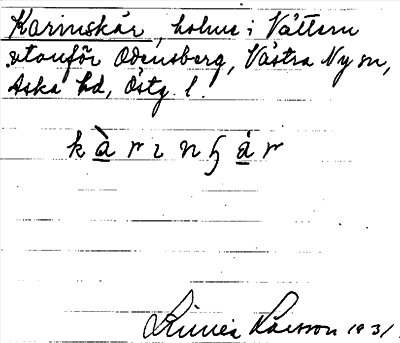 Karinskär, holme i Vättern
utanför Odensberg, Västra Ny sn,
Aska hd, Östg. l.
Linnéa Larsson 1931.